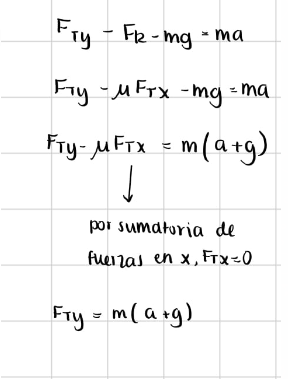 FTy - Fk - mg = ma
FTy - μFTx - mg = ma
FTy - μFTx = m(a+g)
↓
por sumatoria de
fuerzas en x, FTx=0
FTy = m(a+g)